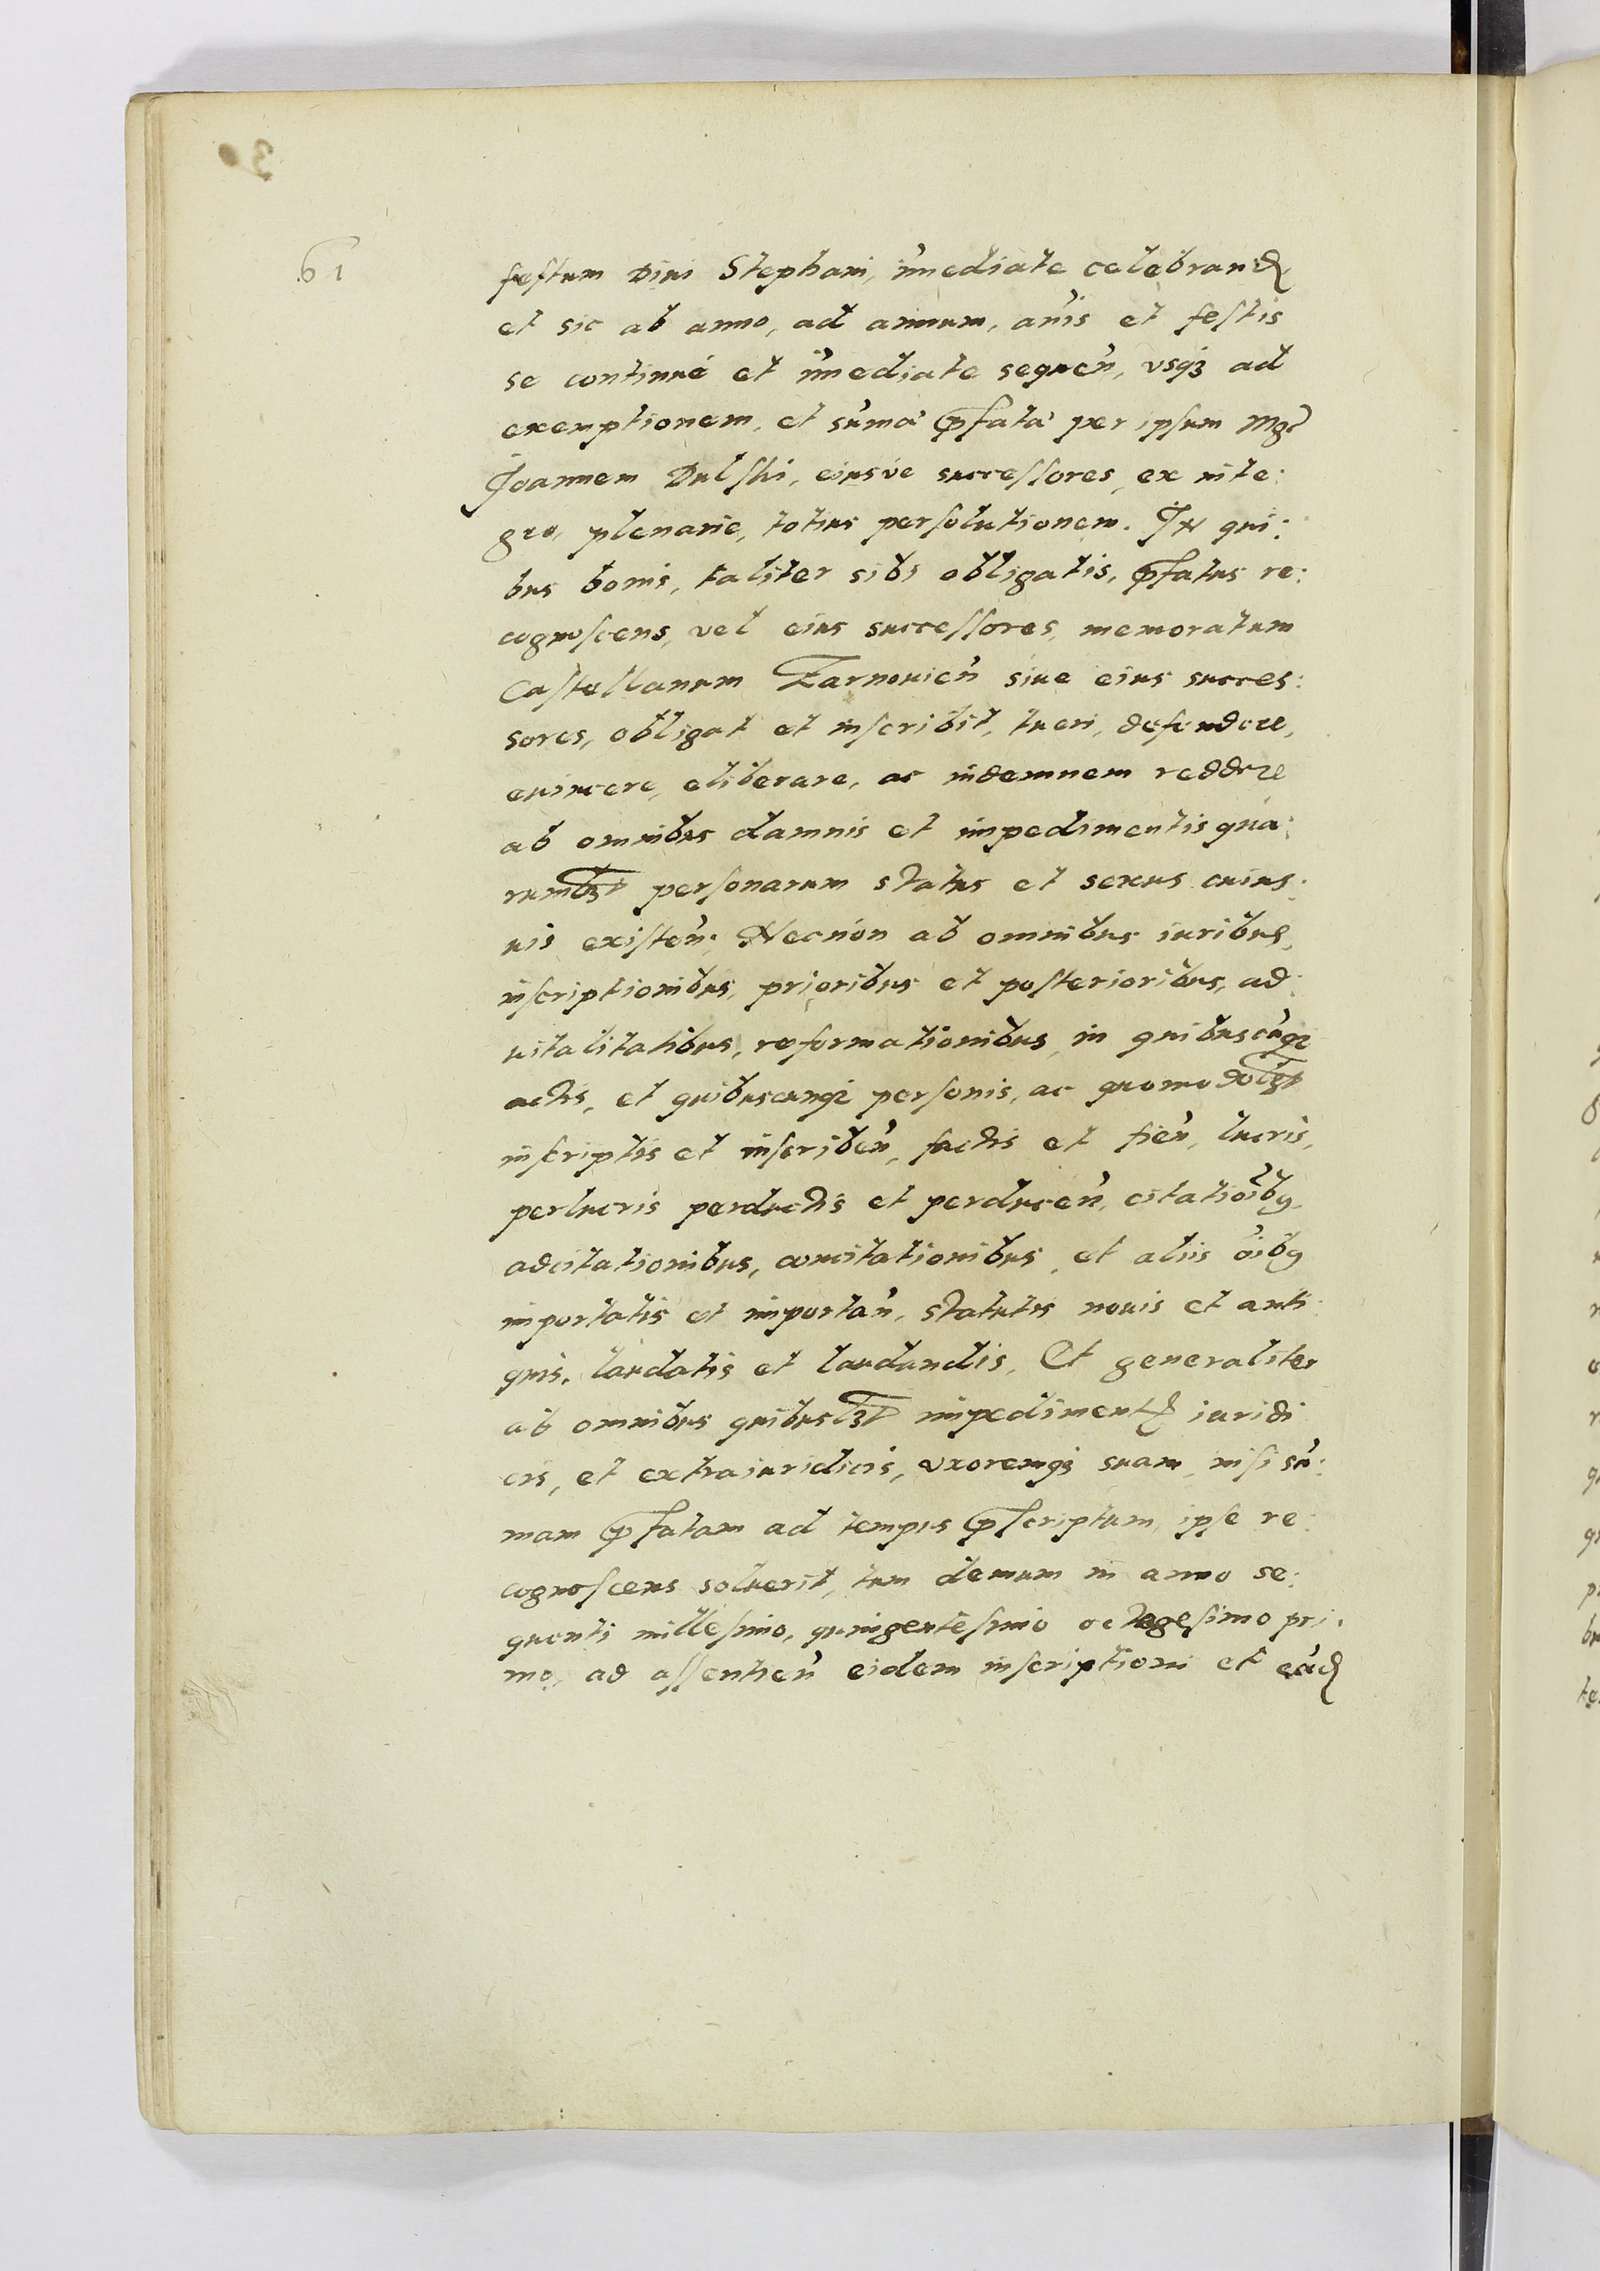 61
festum Diui Stephani, im̃ediate celebrand
et sic ab anno, ad annum, an̄is et festis
se continué et im̃ediate sequeñ, vsq3 ad
exemptionem, et sum̃a p̱fata per ipsum Mg
Joannem Dulski, eiusve successores, ex inte:
gro, plenarie, totius persolutionem. In qui:
bus bonis, taliter sibi obligatis, p̱fatus re:
cognoscens, vel eius successores, memoratum
Castellanum Zarnouieñ siue eius succes:
sores, obligat et inscribit, tueri, defendere,
euincere, eliberare, ac indemnem reddere
ab omnibus damnis et impedimentis qua:
rumlb3t personarum status et sexus cuius:
uis existeñ: Necnon ab omnibus iuribus,
inscriptionibus, prioribus et posterioribus, ad:
uitalitatibus, reformationibus in quibuscũq3
actis, et quibuscunq3 personis, ac quomodolb3t
inscriptis et inscribeñ, factis et fieñ, lucris,
perlucris perductis et perduceñ, citatioĩb9,
adcitationibus, concitationibus, et aliis õib9
importatis et importañ, statutis nouis et anti:
quis, laudatis et laudandis, Et generaliter
ab omnibus quibuslb3t impediment iuridi
cis, et extraiuridicis, vxoremq3 suam, nisi sũ:
mam p̱fatam ad tempus p̱scriptum, ipse re:
cognoscens soluerit, tum demum in anno se:
quenti millesimo, quingentesimo octogesimo pri:
mo, ad assentieñ eidem inscriptioni et eãd